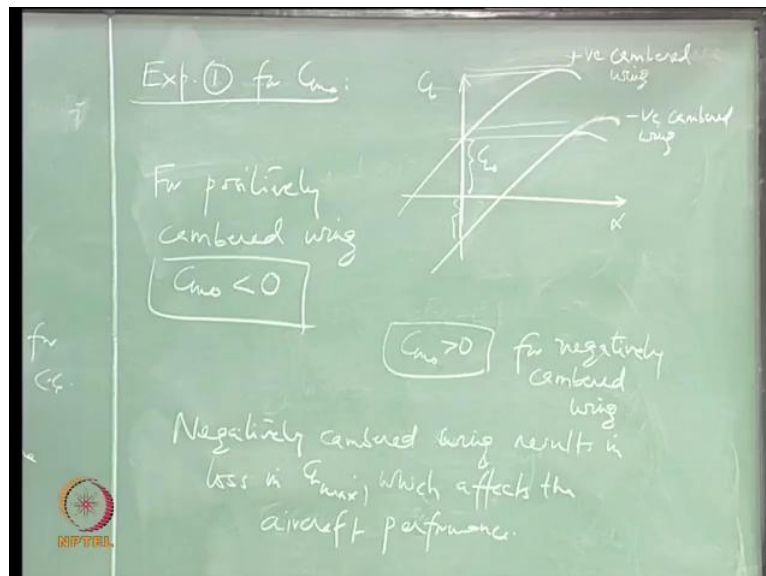 Exp. ① for Cm₀:
CL
+ve cambered
wing
-ve cambered
wing
CL₀
α
For positively
cambered wing
Cm₀ < 0
Cm₀ > 0 for negatively
cambered
wing
for
C.G.
Negatively cambered wing results in
loss in CLmax, which affects the
aircraft performance.
NPTEL